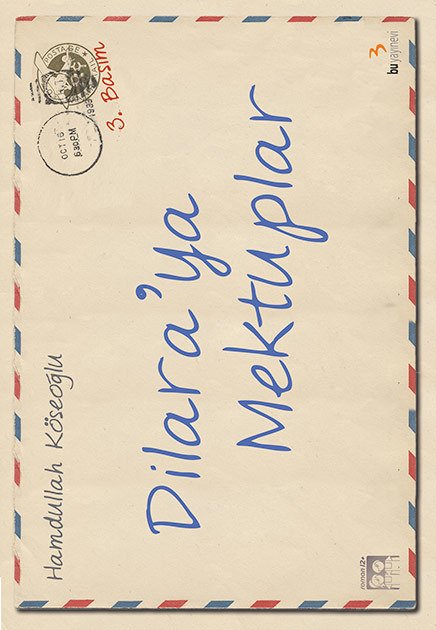 Hamdullah Köseoğlu
3. Basım
POSTAGE
OCT 16
630PM
Dilara'ya
Mektuplar
3
bu yayınevi
roman 12+